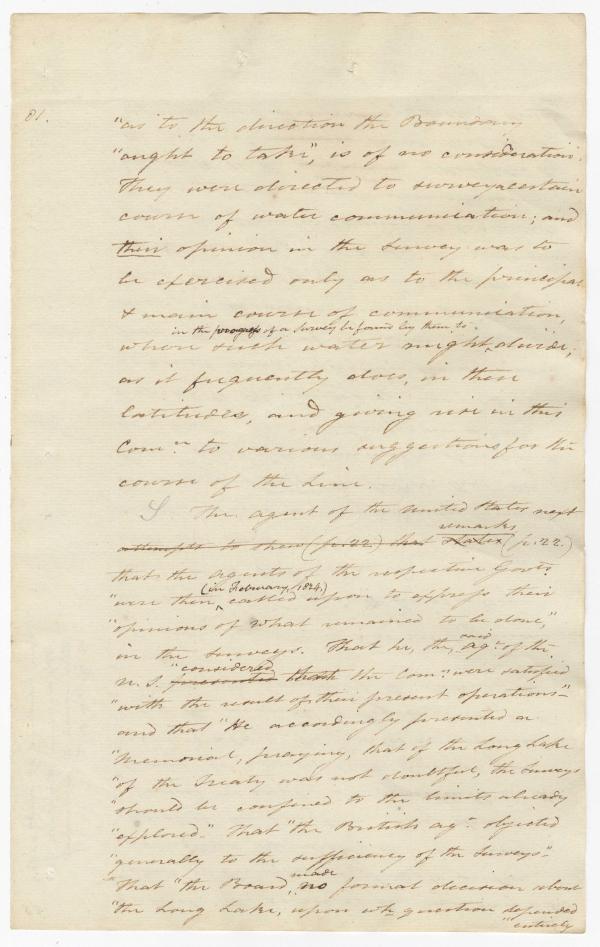 81.
"as to the direction the Boundary
"ought to take", is of no consideration.
They were directed to survey a certain
course of water communication; and
their opinion in the survey was to
be exercised only as to the principal
& main course of communication,
in the progress of a survey be found by them to
where such water might divide,
as it frequently does, in these
latitudes, and giving rise in this
Comn. to various suggestions for the
course of the Line.
The agent of the United States next
remarks
attempts to shew (p. 22.) that States (p. 22.)
that the agents of the respective Govts.
(in February, 1824,)
"were then called upon to express their
"opinions of what remained to be done,"
in the surveys. That he, the said agt. of the
"considered
U. S. presented that the Comrs. were satisfied
"with the result of their present operations"
and that "He accordingly presented a
"Memorial, praying, that if the Long Lake
"of the Treaty was not doubtful, the Surveys
"should be confined to the limits already
"explored." That "the British agt. objected
"generally to the sufficiency of the Surveys"
made
That "the Board, no formal decision about
"the Long Lake, upon wh. question depended
"entirely